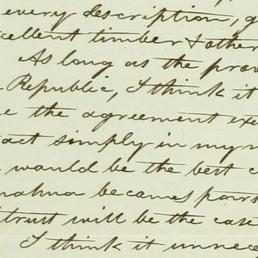 every description, g
cellent timber & other
As long as the prov
Republic, I think it
the agreement exe
act simply in my n
would be the best c
becomes poss
trust will be the case
I think it unnece